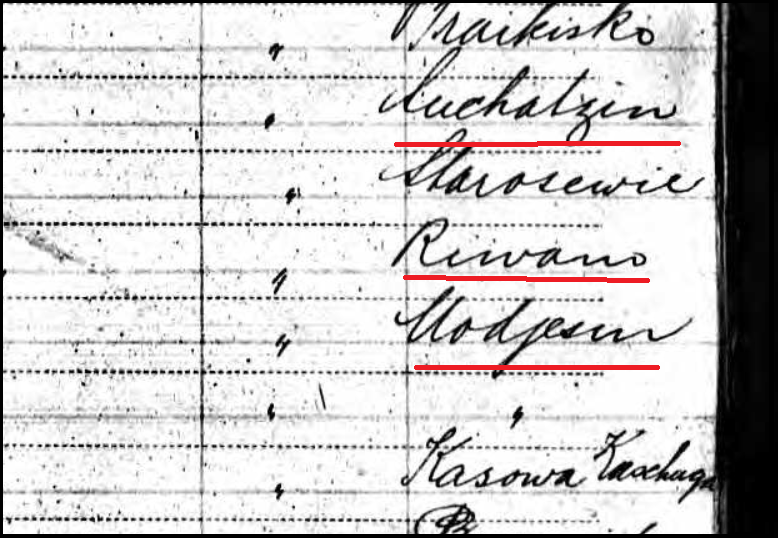 Praikisko
"
Suchatzin
"
Starosewie
"
Riwano
"
Modjesin
"
"
"
Kasowa Kaschuga
"